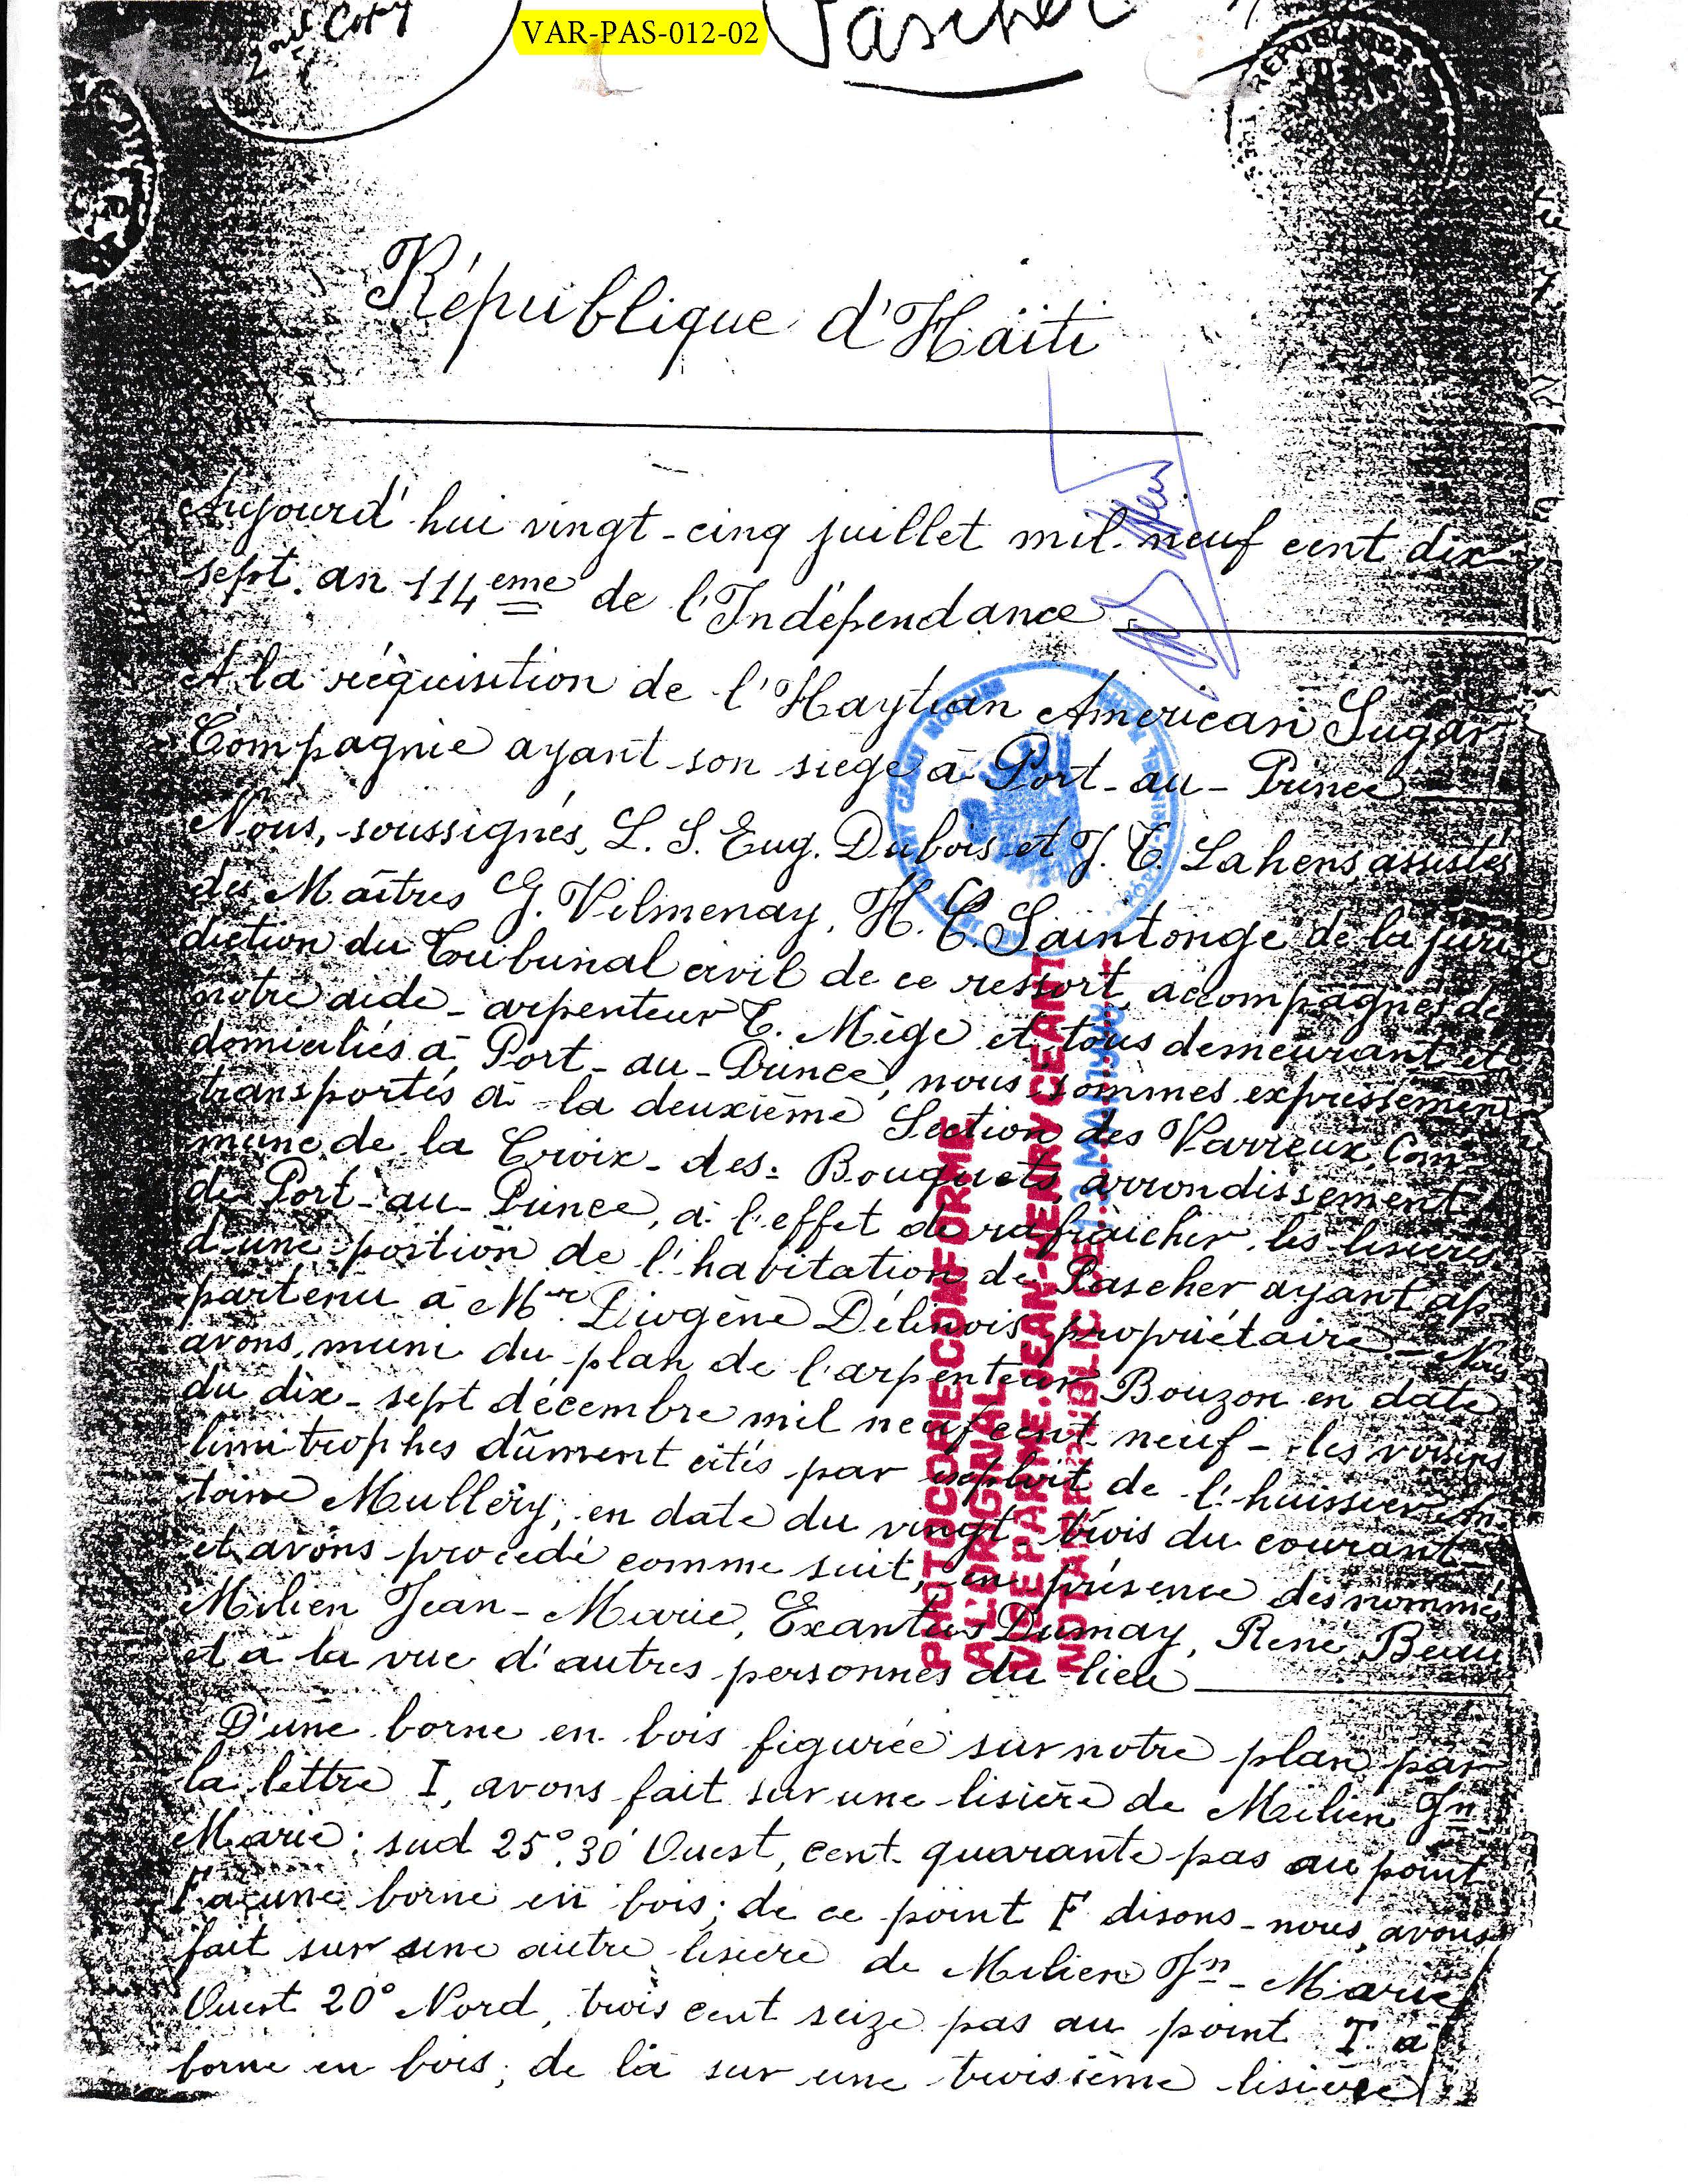 Copy
VAR-PAS-012-02
Pascher
REPUBLIQUE
République d'Haïti
Aujourd'hui vingt-cinq juillet mil-neuf cent dix
sept. an 114eme de l'Indépendance
A la réquisition de l'Haytian American Sugar
Compagnie ayant son siège à Port-au-Prince
Nous, soussignés, L. S. Eug. Dubois et J. T. Lahens assistés
des Maîtres G. Vilmenay, H. C. Saintonge de la juri
diction du Tribunal civil de ce ressort, accompagnés de
notre aide-arpenteur T. Mège et tous demeurant et
domiciliés à Port-au-Prince, nous sommes expressément
transportés à la deuxième Section des Varreux, Com
mune de la Croix-des-Bouquets, arrondissement
de Port-au-Prince, à l'effet de rafraîcher les lisières
d'une portion de l'habitation de Pascher ayant ap
partenu à Mr Diogène Délinois propriétaire - Nous
avons, muni du plan de l'arpenteur Bouzon en date
du dix-sept décembre mil neuf cent neuf - les voisins
limitrophes dûment cités par exploit de l'huissier An
toine Mullery, en date du vingt-trois du courant
et avons procédé comme suit, en présence des nommés
Milien Jean-Marie, Exantus Dumay, René Beau
et à la vue d'autres personnes du lieu
D'une borne en bois figurée sur notre plan par
la lettre I, avons fait sur une lisière de Milien Jn
Marie: sud 25°.30' Ouest, cent quarante pas au point
F à une borne en bois; de ce point F disons-nous, avons
fait sur une autre lisière de Milien Jn-Marie
Ouest 20° Nord, trois cent seize pas au point T à
borne en bois; de là sur une troisième lisière
PHOTOCOPIE CONFORME
A L'ORIGINAL
VIDE PAR ME. JEAN-HENRY CEANT
NOTAIRE PUBLIC